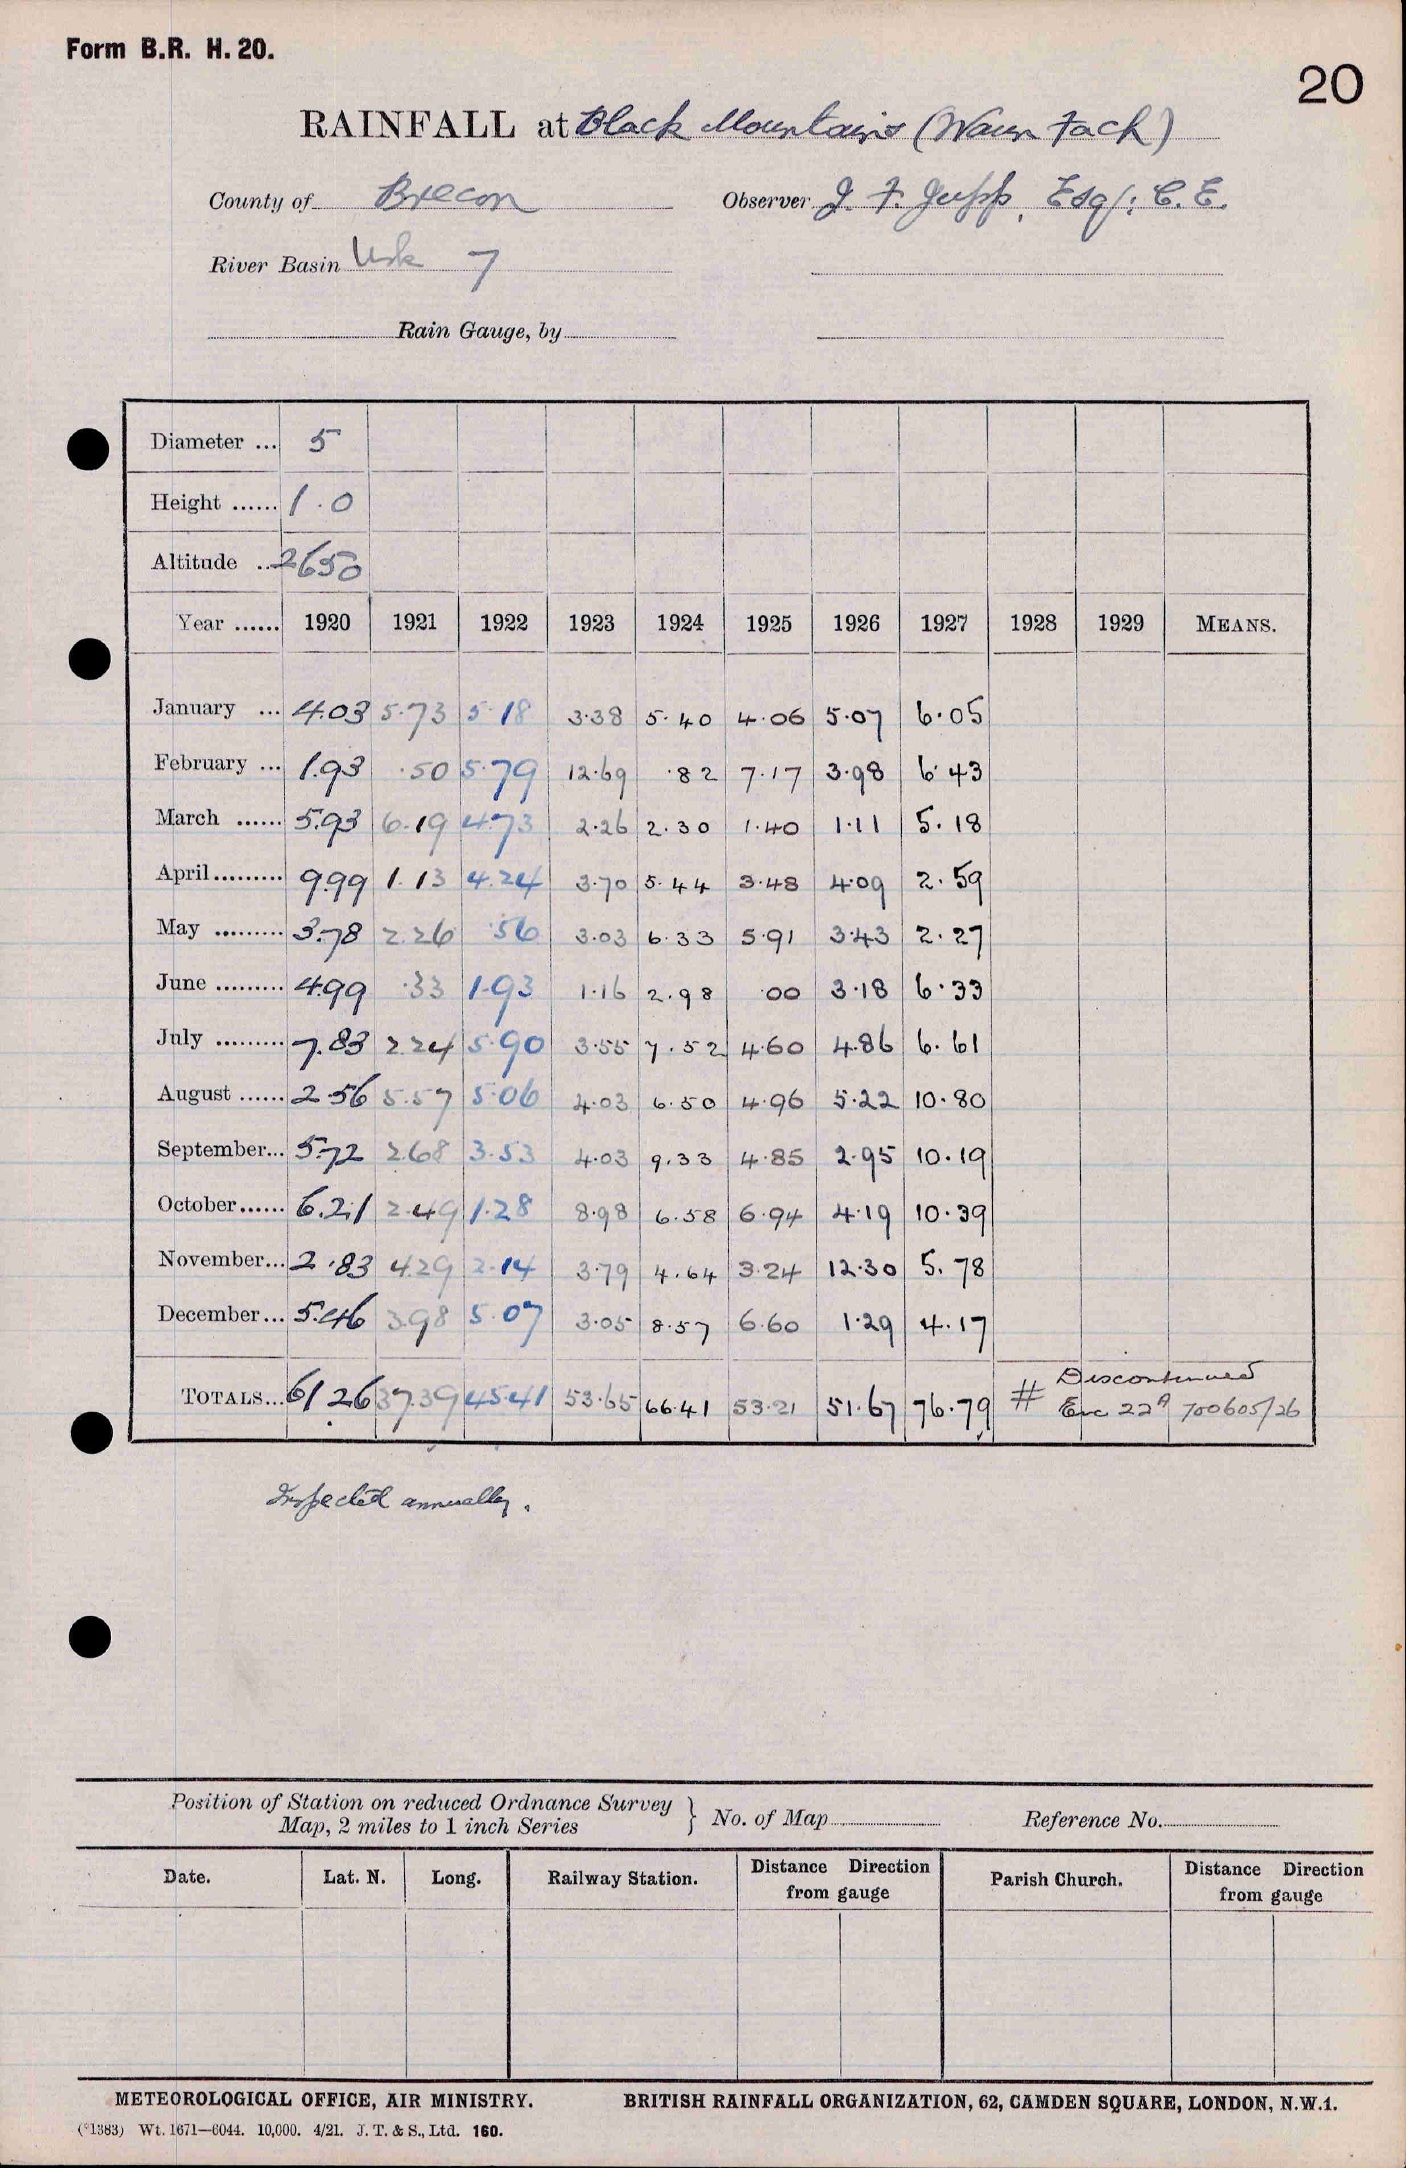 Form B.R. H. 20.
20
RAINFALL at Black Mountains (Waun Fach)
County of Brecon Observer J. F. Jupp, Esq; C.E.
River Basin Usk 7
Rain Gauge, by
Diameter ... 5
Height ...... 1.0
Altitude ... 2650
Year ...... 1920 1921 1922 1923 1924 1925 1926 1927 1928 1929 MEANS.
January ... 4.03 5.73 5.18 3.38 5.40 4.06 5.07 6.05
February ... 1.93 .50 5.79 12.69 .82 7.17 3.98 6.43
March ...... 5.93 6.19 4.73 2.26 2.30 1.40 1.11 5.18
April ......... 9.99 1.13 4.24 3.70 5.44 3.48 4.09 2.59
May ......... 3.78 2.26 .56 3.03 6.33 5.91 3.43 2.27
June ......... 4.99 .33 1.93 1.16 2.98 .00 3.18 6.33
July ......... 7.83 2.24 5.90 3.55 7.52 4.60 4.86 6.61
August ...... 2.56 5.57 5.06 4.03 6.50 4.96 5.22 10.80
September... 5.72 2.68 3.53 4.03 9.33 4.85 2.95 10.19
October ...... 6.21 2.49 1.28 8.98 6.58 6.94 4.19 10.39
November... 2.83 4.29 2.14 3.79 4.64 3.24 12.30 5.78
December... 5.46 3.98 5.07 3.05 8.57 6.60 1.29 4.17
TOTALS... 61.26 37.39 45.41 53.65 66.41 53.21 51.67 76.79 # Discontinued
Enc 22A 700605/26
Inspected annually.
Position of Station on reduced Ordnance Survey
Map, 2 miles to 1 inch Series } No. of Map Reference No.
Date. Lat. N. Long. Railway Station. Distance Direction from gauge Parish Church. Distance Direction from gauge
METEOROLOGICAL OFFICE, AIR MINISTRY. BRITISH RAINFALL ORGANIZATION, 62, CAMDEN SQUARE, LONDON, N.W.1.
(*1383) Wt. 1671—6044. 10,000. 4/21. J. T. & S., Ltd. 160.